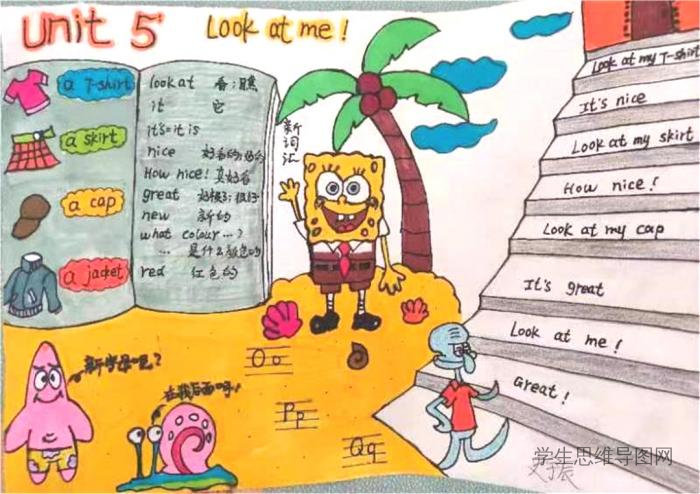 Unit 5
Look at me!
a T-shirt
a skirt
a cap
a jacket
look at 看;瞧
it 它
it's=it is
nice 好看的;
How nice! 真好看
great
new 新的
what colour...?
... 是什么颜色的
red 红色的
新词汇
新字母呢?
在我后面呀!
Oo
Pp
Qq
Look at my T-shirt
It's nice
Look at my skirt
How nice!
Look at my cap
It's great
Look at me!
Great!
学生思维导图网